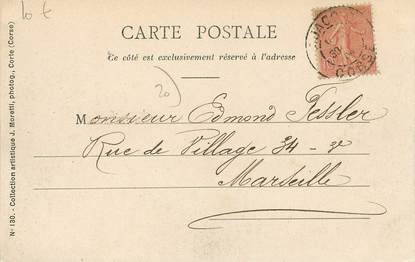 10 €
CARTE POSTALE
Ce côté est exclusivement réservé à l'adresse
20
Monsieur Edmond Tessler
Rue de Village 34 -
Marseille
CORSE
N° 130. - Collection artistique J. Moretti, photog., Corte (Corse)